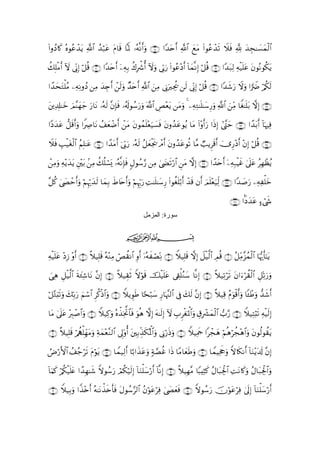 ٱلْمَسَٰجِدَ لِلَّهِ فَلَا تَدْعُوا۟ مَعَ ٱللَّهِ أَحَدًا ﴿١٨﴾ وَأَنَّهُۥ لَمَّا قَامَ عَبْدُ ٱللَّهِ يَدْعُوهُ كَادُوا۟
يَكُونُونَ عَلَيْهِ لِبَدًا ﴿١٩﴾ قُلْ إِنَّمَآ أَدْعُوا۟ رَبِّى وَلَآ أُشْرِكُ بِهِۦٓ أَحَدًا ﴿٢٠﴾ قُلْ إِنِّى لَآ أَمْلِكُ
لَكُمْ ضَرًّا وَلَا رَشَدًا ﴿٢١﴾ قُلْ إِنِّى لَن يُجِيرَنِى مِنَ ٱللَّهِ أَحَدٌ وَلَنْ أَجِدَ مِن دُونِهِۦ مُلْتَحَدًا
﴿٢٢﴾ إِلَّا بَلَٰغًا مِّنَ ٱللَّهِ وَرِسَٰلَٰتِهِۦ ۚ وَمَن يَعْصِ ٱللَّهَ وَرَسُولَهُۥ فَإِنَّ لَهُۥ نَارَ جَهَنَّمَ خَٰلِدِينَ
فِيهَآ أَبَدًا ﴿٢٣﴾ حَتَّىٰٓ إِذَا رَأَوْا۟ مَا يُوعَدُونَ فَسَيَعْلَمُونَ مَنْ أَضْعَفُ نَاصِرًا وَأَقَلُّ عَدَدًا
﴿٢٤﴾ قُلْ إِنْ أَدْرِىٓ أَقَرِيبٌ مَّا تُوعَدُونَ أَمْ يَجْعَلُ لَهُۥ رَبِّىٓ أَمَدًا ﴿٢٥﴾ عَٰلِمُ ٱلْغَيْبِ فَلَا
يُظْهِرُ عَلَىٰ غَيْبِهِۦٓ أَحَدًا ﴿٢٦﴾ إِلَّا مَنِ ٱرْتَضَىٰ مِن رَّسُولٍ فَإِنَّهُۥ يَسْلُكُ مِنۢ بَيْنِ يَدَيْهِ وَمِنْ
خَلْفِهِۦ رَصَدًا ﴿٢٧﴾ لِّيَعْلَمَ أَن قَدْ أَبْلَغُوا۟ رِسَٰلَٰتِ رَبِّهِمْ وَأَحَاطَ بِمَا لَدَيْهِمْ وَأَحْصَىٰ كُلَّ
شَىْءٍ عَدَدًۢا ﴿٢٨﴾
سورة: المزمل
بِسْمِ ٱللَّهِ ٱلرَّحْمَٰنِ ٱلرَّحِيمِ
يَٰٓأَيُّهَا ٱلْمُزَّمِّلُ ﴿١﴾ قُمِ ٱلَّيْلَ إِلَّا قَلِيلًا ﴿٢﴾ نِّصْفَهُۥٓ أَوِ ٱنقُصْ مِنْهُ قَلِيلًا ﴿٣﴾ أَوْ زِدْ عَلَيْهِ
وَرَتِّلِ ٱلْقُرْءَانَ تَرْتِيلًا ﴿٤﴾ إِنَّا سَنُلْقِى عَلَيْكَ قَوْلًا ثَقِيلًا ﴿٥﴾ إِنَّ نَاشِئَةَ ٱلَّيْلِ هِىَ
أَشَدُّ وَطْـًٔا وَأَقْوَمُ قِيلًا ﴿٦﴾ إِنَّ لَكَ فِى ٱلنَّهَارِ سَبْحًا طَوِيلًا ﴿٧﴾ وَٱذْكُرِ ٱسْمَ رَبِّكَ وَتَبَتَّلْ
إِلَيْهِ تَبْتِيلًا ﴿٨﴾ رَّبُّ ٱلْمَشْرِقِ وَٱلْمَغْرِبِ لَآ إِلَٰهَ إِلَّا هُوَ فَٱتَّخِذْهُ وَكِيلًا ﴿٩﴾ وَٱصْبِرْ عَلَىٰ مَا
يَقُولُونَ وَٱهْجُرْهُمْ هَجْرًا جَمِيلًا ﴿١٠﴾ وَذَرْنِى وَٱلْمُكَذِّبِينَ أُو۟لِى ٱلنَّعْمَةِ وَمَهِّلْهُمْ قَلِيلًا ﴿١١﴾
إِنَّ لَدَيْنَآ أَنكَالًا وَجَحِيمًا ﴿١٢﴾ وَطَعَامًا ذَا غُصَّةٍ وَعَذَابًا أَلِيمًا ﴿١٣﴾ يَوْمَ تَرْجُفُ ٱلْأَرْضُ
وَٱلْجِبَالُ وَكَانَتِ ٱلْجِبَالُ كَثِيبًا مَّهِيلًا ﴿١٤﴾ إِنَّآ أَرْسَلْنَآ إِلَيْكُمْ رَسُولًا شَٰهِدًا عَلَيْكُمْ كَمَآ
أَرْسَلْنَآ إِلَىٰ فِرْعَوْنَ رَسُولًا ﴿١٥﴾ فَعَصَىٰ فِرْعَوْنُ ٱلرَّسُولَ فَأَخَذْنَٰهُ أَخْذًا وَبِيلًا ﴿١٦﴾